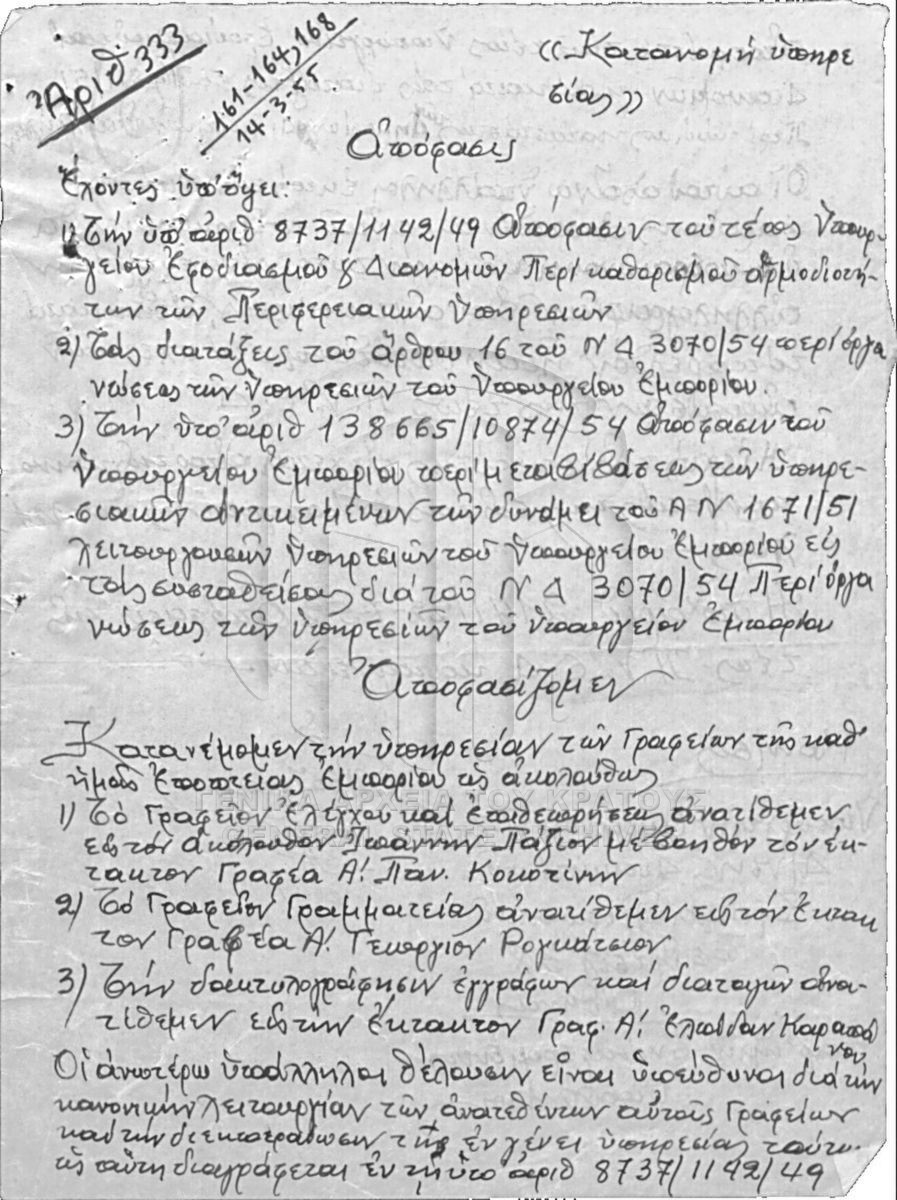 Ἀριθ 333
161-164, 168
14-3-55
«Κατανομή ὑπηρε
σίας»
Ἀπόφασις
Ἔχοντες ὑπ' ὄψει:
1) Τήν ὑπ' ἀριθ 8737/1142/49 Ἀπόφασιν τοῦ τέως Ὑπουρ-
γείου Ἐφοδιασμοῦ & Διανομῶν Περί καθορισμοῦ ἁρμοδιοτή-
των τῶν Περιφερειακῶν Ὑπηρεσιῶν
2) Τάς διατάξεις τοῦ ἄρθρου 16 τοῦ Ν Δ 3070/54 περί ὀργα
νώσεως τῶν Ὑπηρεσιῶν τοῦ Ὑπουργείου Ἐμπορίου.
3) Τήν ὑπ' ἀριθ 138665/10874/54 Ἀπόφασιν τοῦ
Ὑπουργείου Ἐμπορίου περί μεταβιβάσεως τῶν ὑπηρε-
σιακῶν ἀντικειμένων τῶν δυνάμει τοῦ Α Ν 1671/51
λειτουργουσῶν Ὑπηρεσιῶν τοῦ Ὑπουργείου Ἐμπορίου εἰς
τάς συσταθείσας διά τοῦ Ν Δ 3070/54 Περί ὀργα
νώσεως τῶν Ὑπηρεσιῶν τοῦ Ὑπουργείου Ἐμπορίου
Ἀποφασίζομεν
Κατανέμομεν τήν ὑπηρεσίαν τῶν Γραφείων τῆς καθ'
ἡμᾶς Ἐποπτείας Ἐμπορίου ὡς ἀκολούθως
ΓΕΝΙΚΑ ΑΡΧΕΙΑ ΤΟΥ ΚΡΑΤΟΥΣ
GENERAL STATE ARCHIVES
1) Τό Γραφεῖον Ἐλέγχου καί Ἐπιθεωρήσεως ἀνατίθεμεν
εἰς τόν ἀκόλουθον Ἰωάννην Πάζιον με βοηθόν τόν ἔκ-
τακτον Γραφέα Α! Παν. Κοκοτίνην
2) Τό Γραφεῖον Γραμματείας ἀνατίθεμεν εἰς τόν ἔκτακ
τον Γραφέα Α! Γεώργιον Ρογκάτσιον
3) Τήν δακτυλογράφησιν ἐγγράφων καί διαταγῶν ἀνα-
τίθεμεν εἰς τήν ἔκτακτον Γραφ. Α! Ἐλπίδαν Καραπά
νου
Οἱ ἀνωτέρω ὑπάλληλοι θέλουσιν εἶναι ὑπεύθυνοι διά τήν
κανονικήν λειτουργίαν τῶν ἀνατεθέντων αὐτοῖς Γραφείων
καί τήν διεκπεραίωσιν τῆς ἐν γένει ὑπηρεσίας τούτων
ὡς αὕτη διαγράφεται ἐν τῇ ὑπ' ἀριθ 8737/1142/49